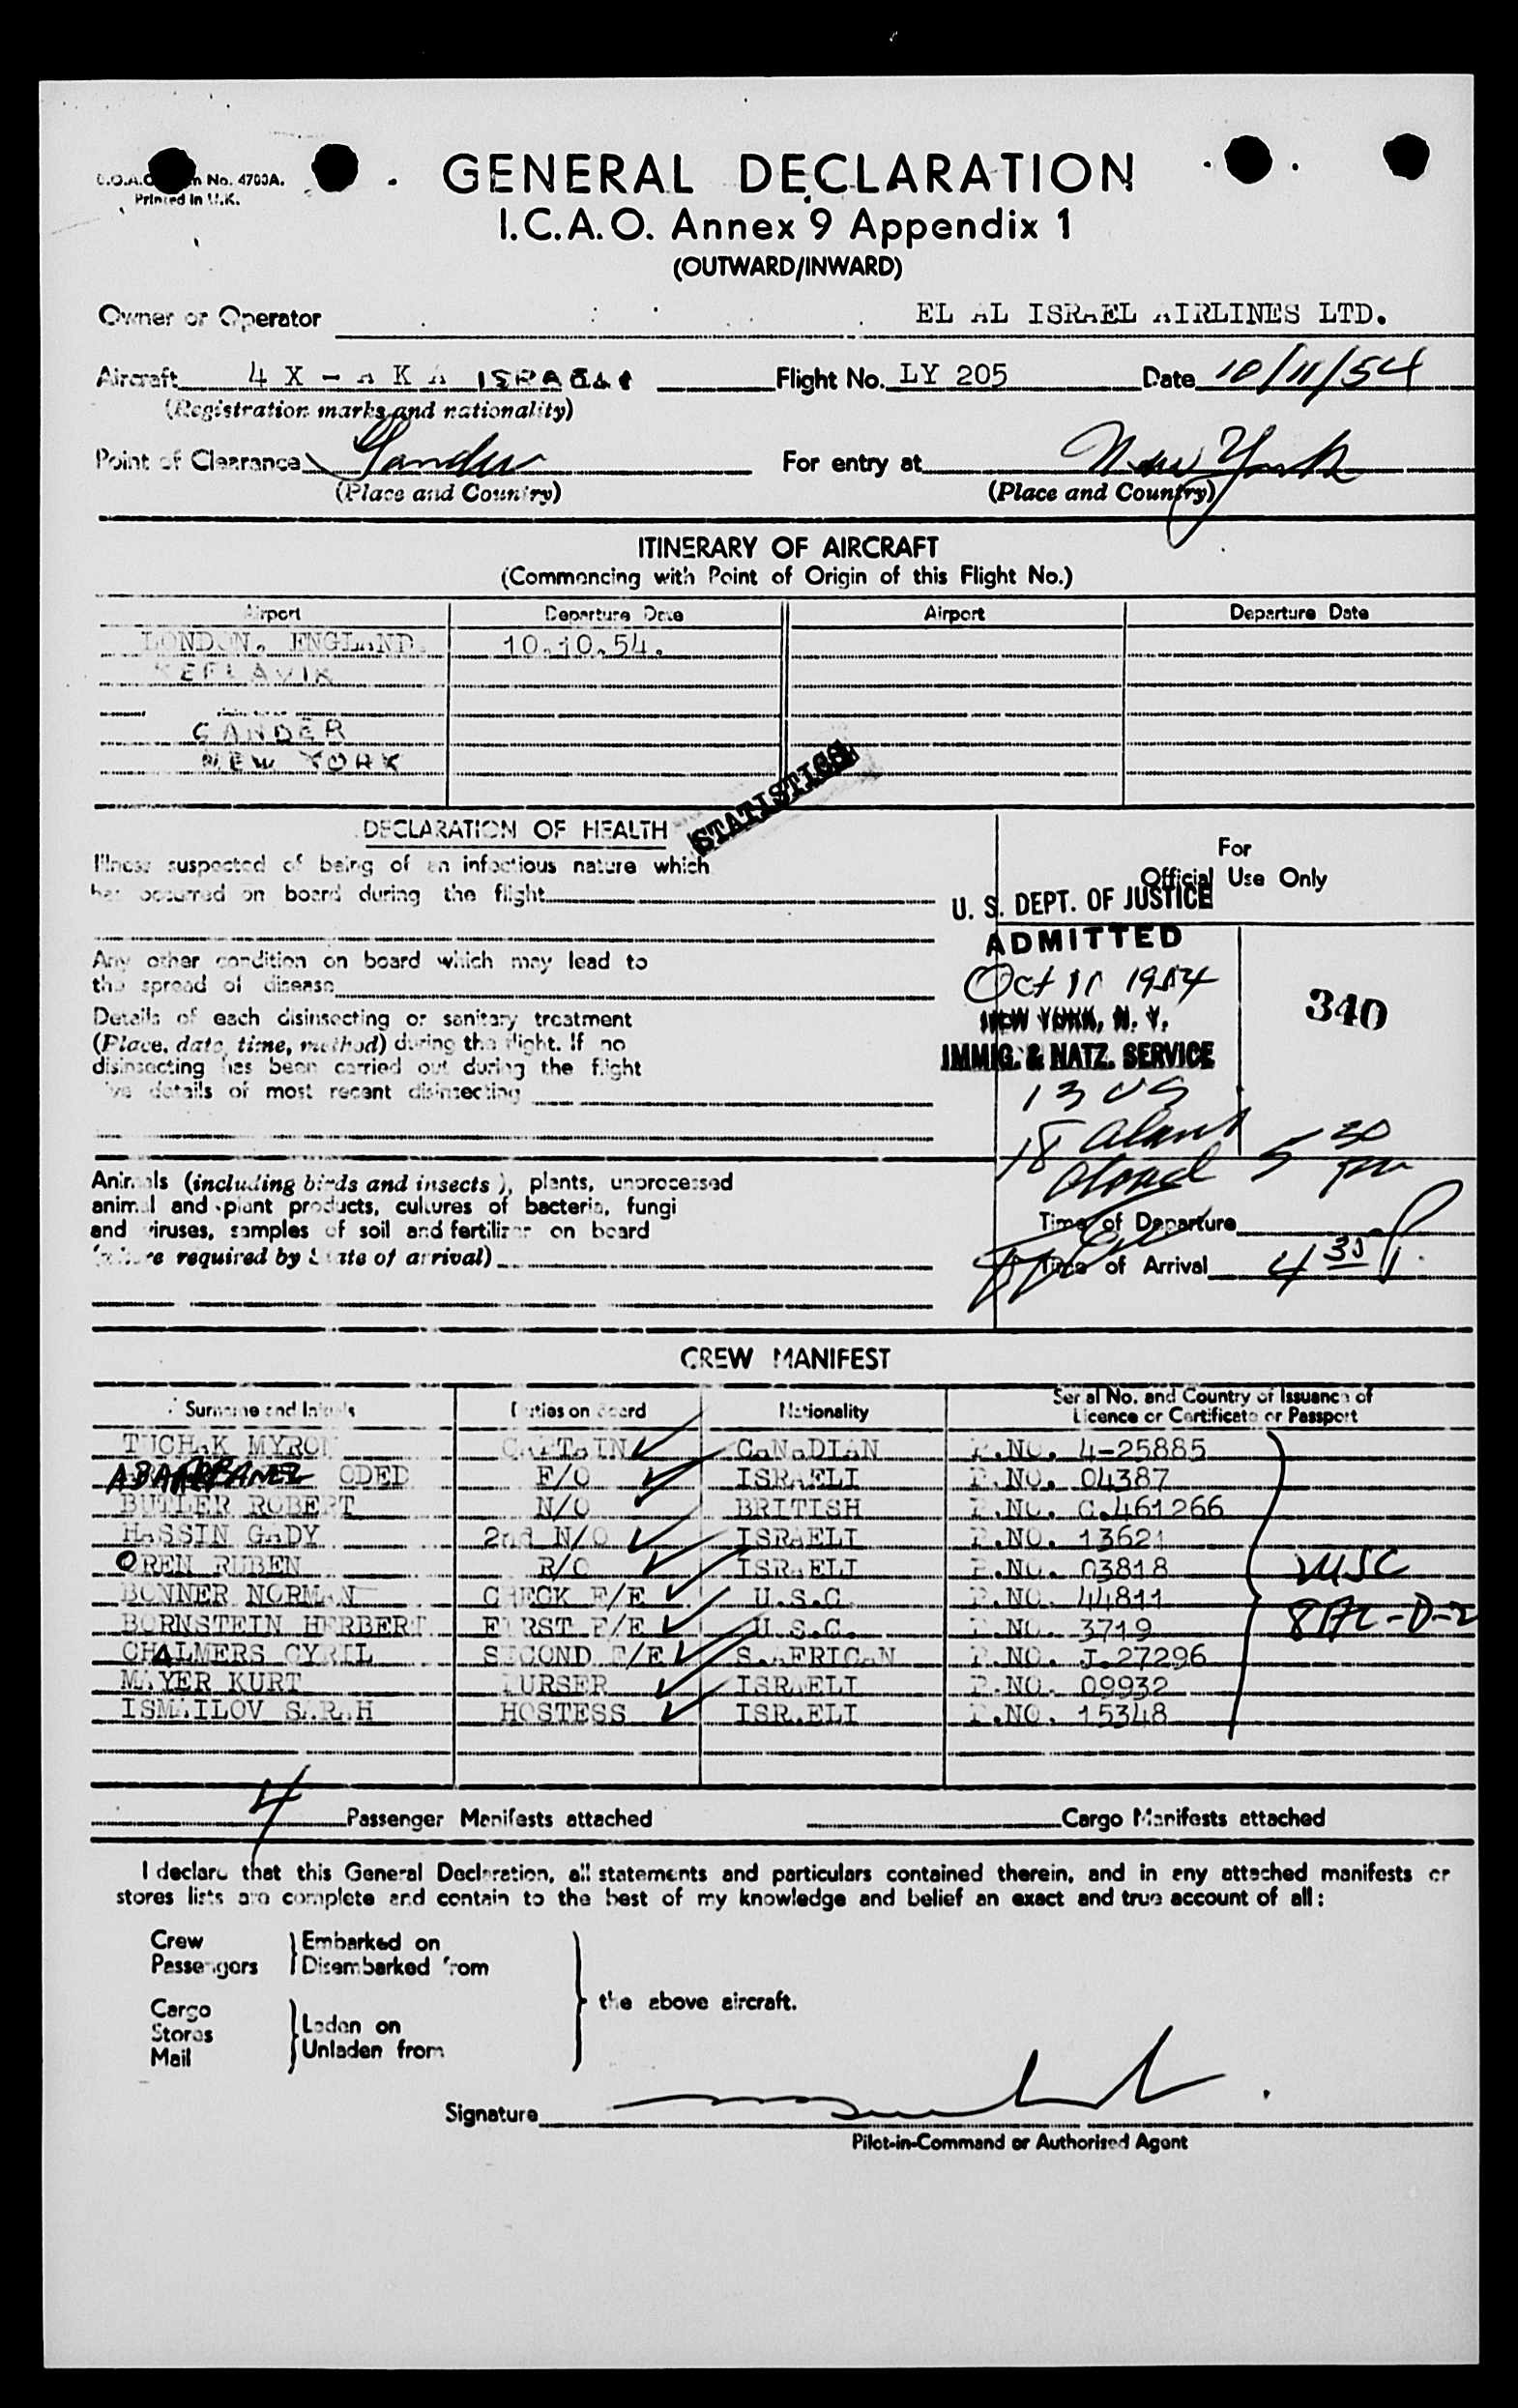 GENERAL DECLARATION
No. 4700A.
Printed in U.K.
I.C.A.O. Annex 9 Appendix 1
(OUTWARD/INWARD)
Owner or Operator EL AL ISRAEL AIRLINES LTD.
Aircraft 4 X - A K A ISRAELI Flight No. LY 205 Date 10/11/54
(Registration marks and nationality)
Point of Clearance Gander For entry at New York
(Place and Country) (Place and Country)
ITINERARY OF AIRCRAFT
(Commencing with Point of Origin of this Flight No.)
Airport Departure Date Airport Departure Date
LONDON, ENGLAND. 10.10.54.
KEFLAVIK
GANDER
NEW YORK
STATISTICS
DECLARATION OF HEALTH
Illness suspected of being of an infectious nature which
has occurred on board during the flight
Any other condition on board which may lead to
the spread of disease
Details of each disinsecting or sanitary treatment
(Place, date, time, method) during the flight. If no
disinsecting has been carried out during the flight
give details of most recent disinsecting
Animals (including birds and insects), plants, unprocessed
animal and plant products, cultures of bacteria, fungi
and viruses, samples of soil and fertilizer on board
(where required by State of arrival)
For
Official Use Only
U. S. DEPT. OF JUSTICE
ADMITTED
Oct 11 1954
NEW YORK, N. Y.
IMMIG. & NATZ. SERVICE
340
13 US
18 aliens
5 30 pm
Time of Departure
Time of Arrival 4 30 P
CREW MANIFEST
Surname and Initials Duties on Board Nationality Serial No. and Country of Issuance of
Licence or Certificate or Passport
TUCHAK MYRON CAPTAIN CANADIAN P.NO. 4-25885
ABARBANEL ODED F/O ISRAELI P.NO. 04387
BUTLER ROBERT N/O BRITISH P.NO. C.461266
HASSIN GADY 2nd N/O ISRAELI P.NO. 13621
OREN RUBEN R/O ISRAELI P.NO. 03818
BONNER NORMAN CHECK F/E U.S.C. P.NO. 44811
BORNSTEIN HERBERT FIRST F/E U.S.C. P.NO. 3719
CHALMERS CYRIL SECOND F/E S.AFRICAN P.NO. J.27296
MAYER KURT PURSER ISRAELI P.NO. 09932
ISMAILOV SARAH HOSTESS ISRAELI P.NO. 15348
4 Passenger Manifests attached Cargo Manifests attached
I declare that this General Declaration, all statements and particulars contained therein, and in any attached manifests or
stores lists are complete and contain to the best of my knowledge and belief an exact and true account of all:
Crew Embarked on
Passengers Disembarked from
the above aircraft.
Cargo
Stores Laden on
Mail Unladen from
Signature
Pilot-in-Command or Authorised Agent